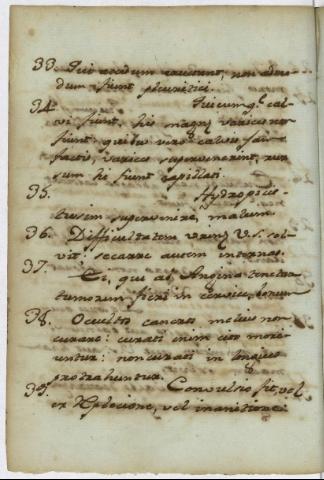 33. Qui acidum eructant, non admo-
dum fiunt pleuritici.
34. Quicumq. cal-
vi fiunt, his magnę varices non
fiunt: quibus verò calvis fac-
factis, varices supervenerint, rur
sum hi fiunt capillati.
35. Hydropicis
tussim supervenire, malum.
36. Difficultatem urinę V.S. sol-
vit: secare autem internas.
37. Ei, qui ab Angina tenetur
tumorem fieri in cervice, bonum
38. Occultos cancros melius non
curare: curati enim cito mori-
untur: non curati in longius
protrahuntur.
39. Convulsio fit, vel
ex Replecione, vel inanitione: